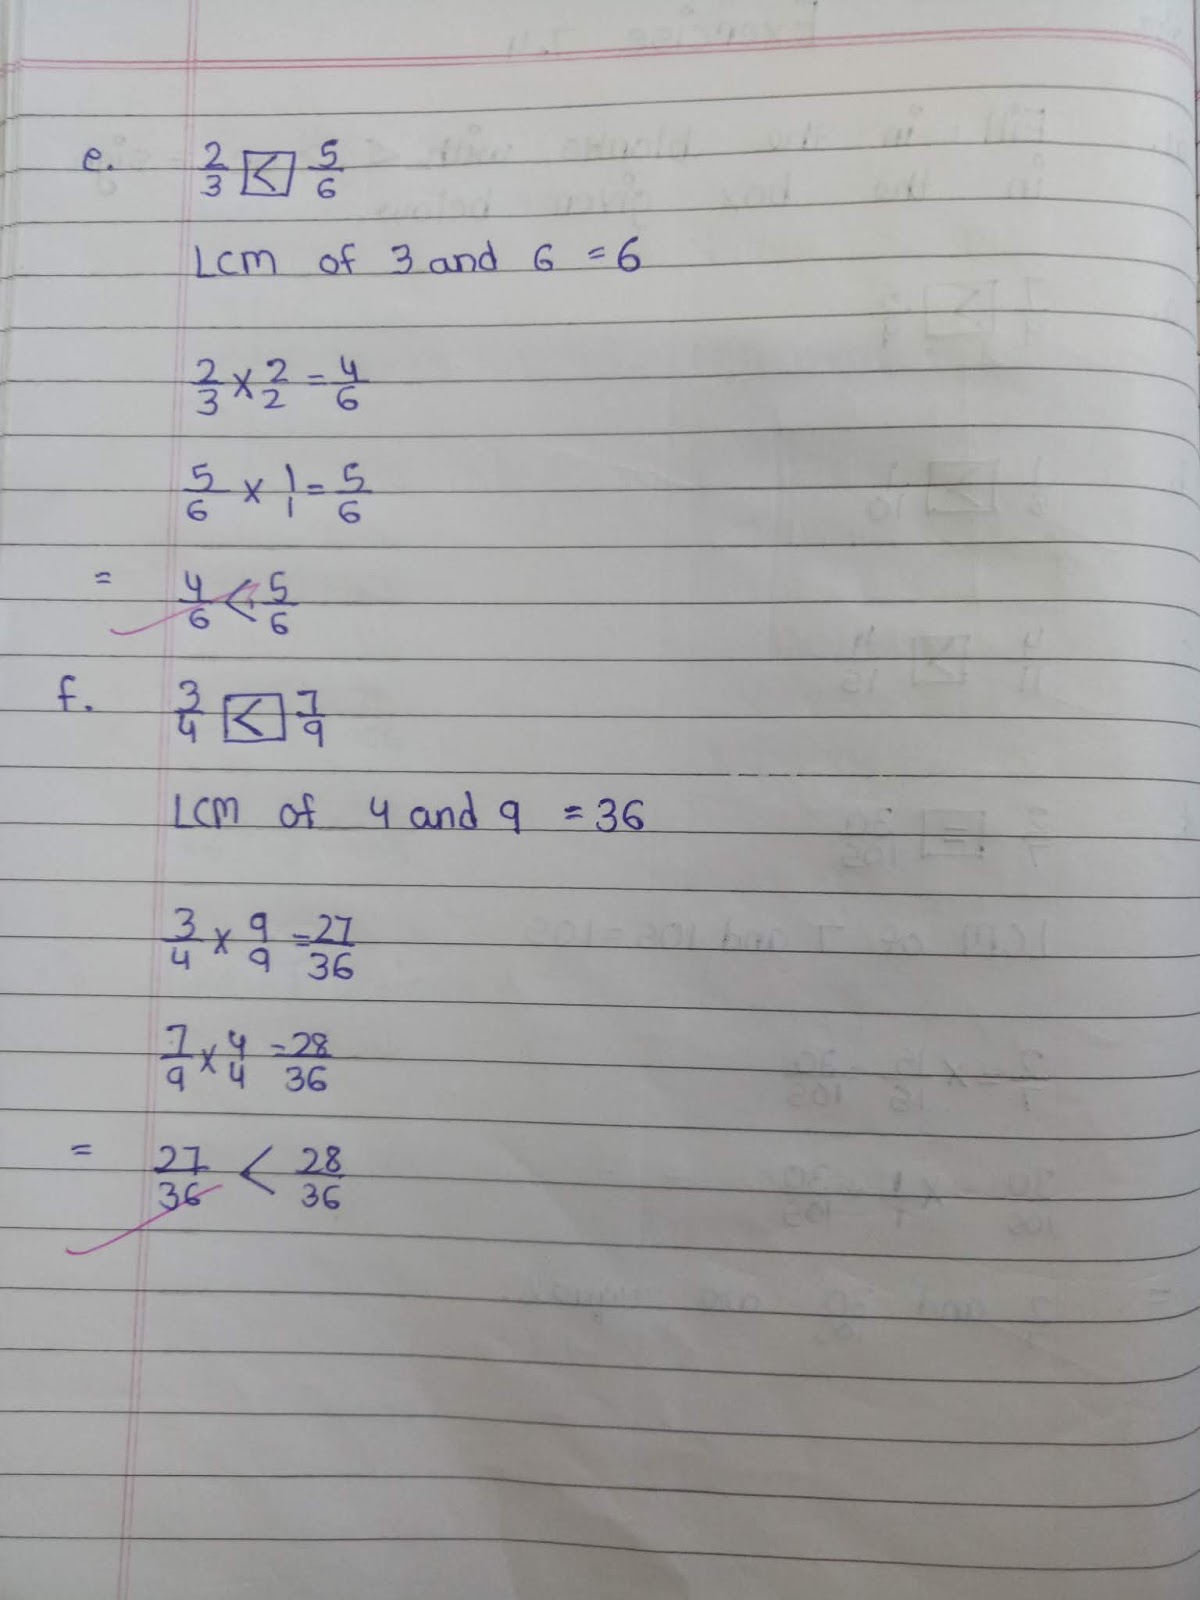 e. 2/3 < 5/6
LCM of 3 and 6 = 6
2/3 × 2/2 = 4/6
5/6 × 1/1 = 5/6
= 4/6 < 5/6
f. 3/4 < 7/9
LCM of 4 and 9 = 36
3/4 × 9/9 = 27/36
7/9 × 4/4 = 28/36
= 27/36 < 28/36